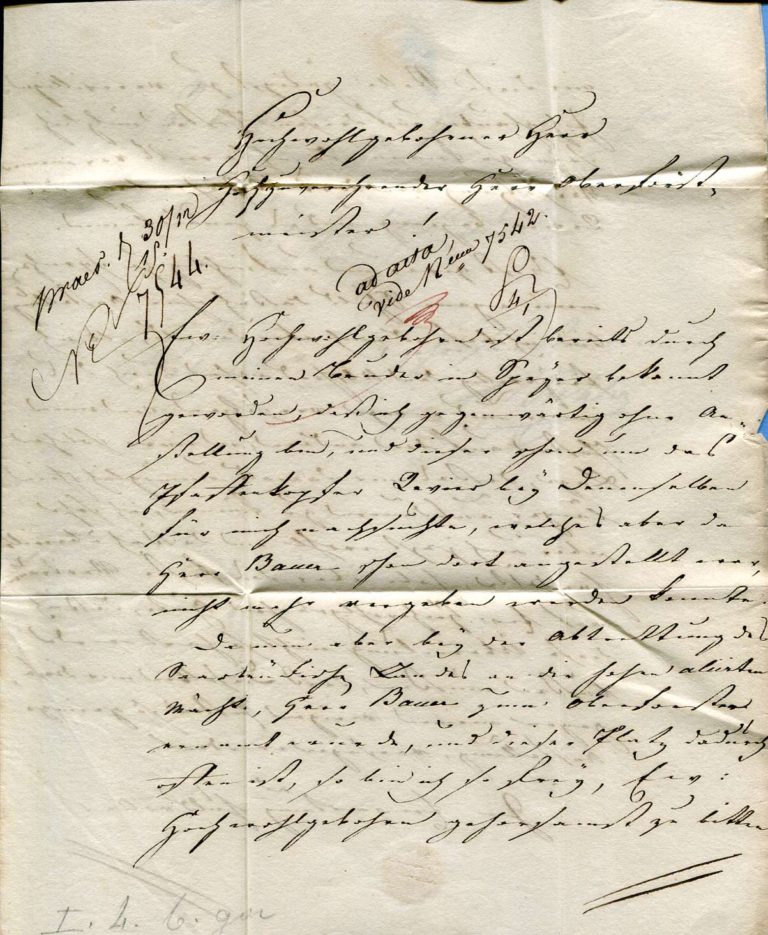 Hochwohlgebohrner Herr
Hochzuverehrender Herr Oberforst-
meister!
praes. 30/12
NE 7544.
ad acta,
vide Nrum 7542.
Ew: Hochwohlgebohrn ist bereits durch
meinen Bruder in Speyer bekannt
geworden, daß ich gegenwärtig ohne An-
stellung bin, und dieser schon um das
Pfaffenkopfer Revier bey Denenselben
für mich nachsuchte, welches aber da
Herr Bauer schon dort angestellt war,
nicht mehr vergeben werden konnte.
Da nun aber bey der Abtrettung des
Landes an die hohen aliirten
Mächte, Herr Bauer zum Oberförster
ernant wurde, und dieser Platz dadurch
offen ist, so bin ich so frey, Ew:
Hochwohlgebohrn gehorsamst zu bitten
I. 4. 6.